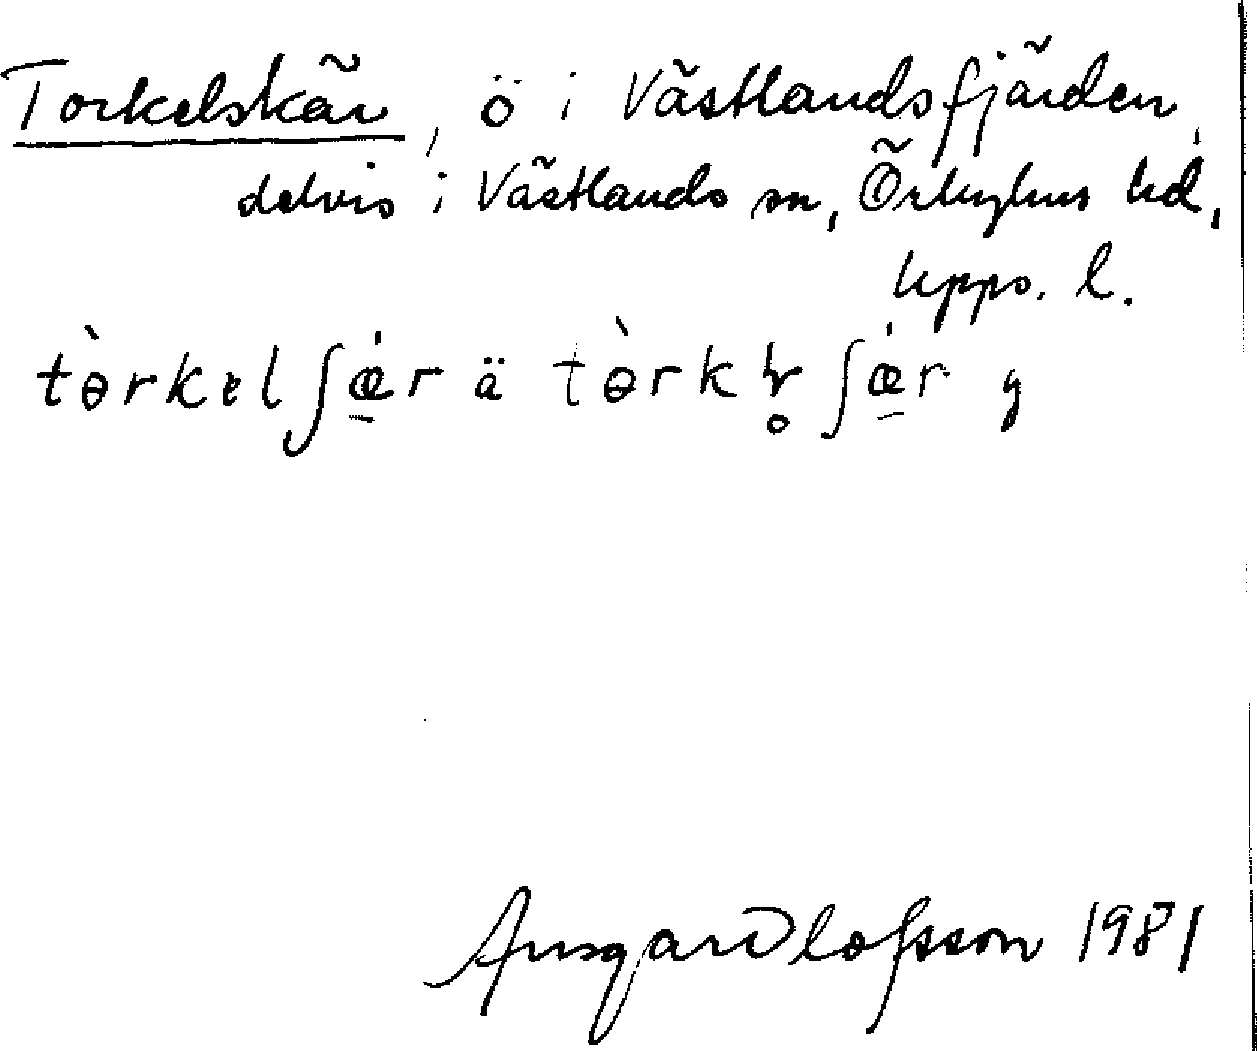 Torkelskär, ö i Västlandsfjärden,
delvis i Västlands sn, Örbyhus hd,
Upps. l.
tɵ̀rkelʃǽ̠r ä tɵ̀rkl̥ʃǽ̠r y
Ansgar Olofsson 1981